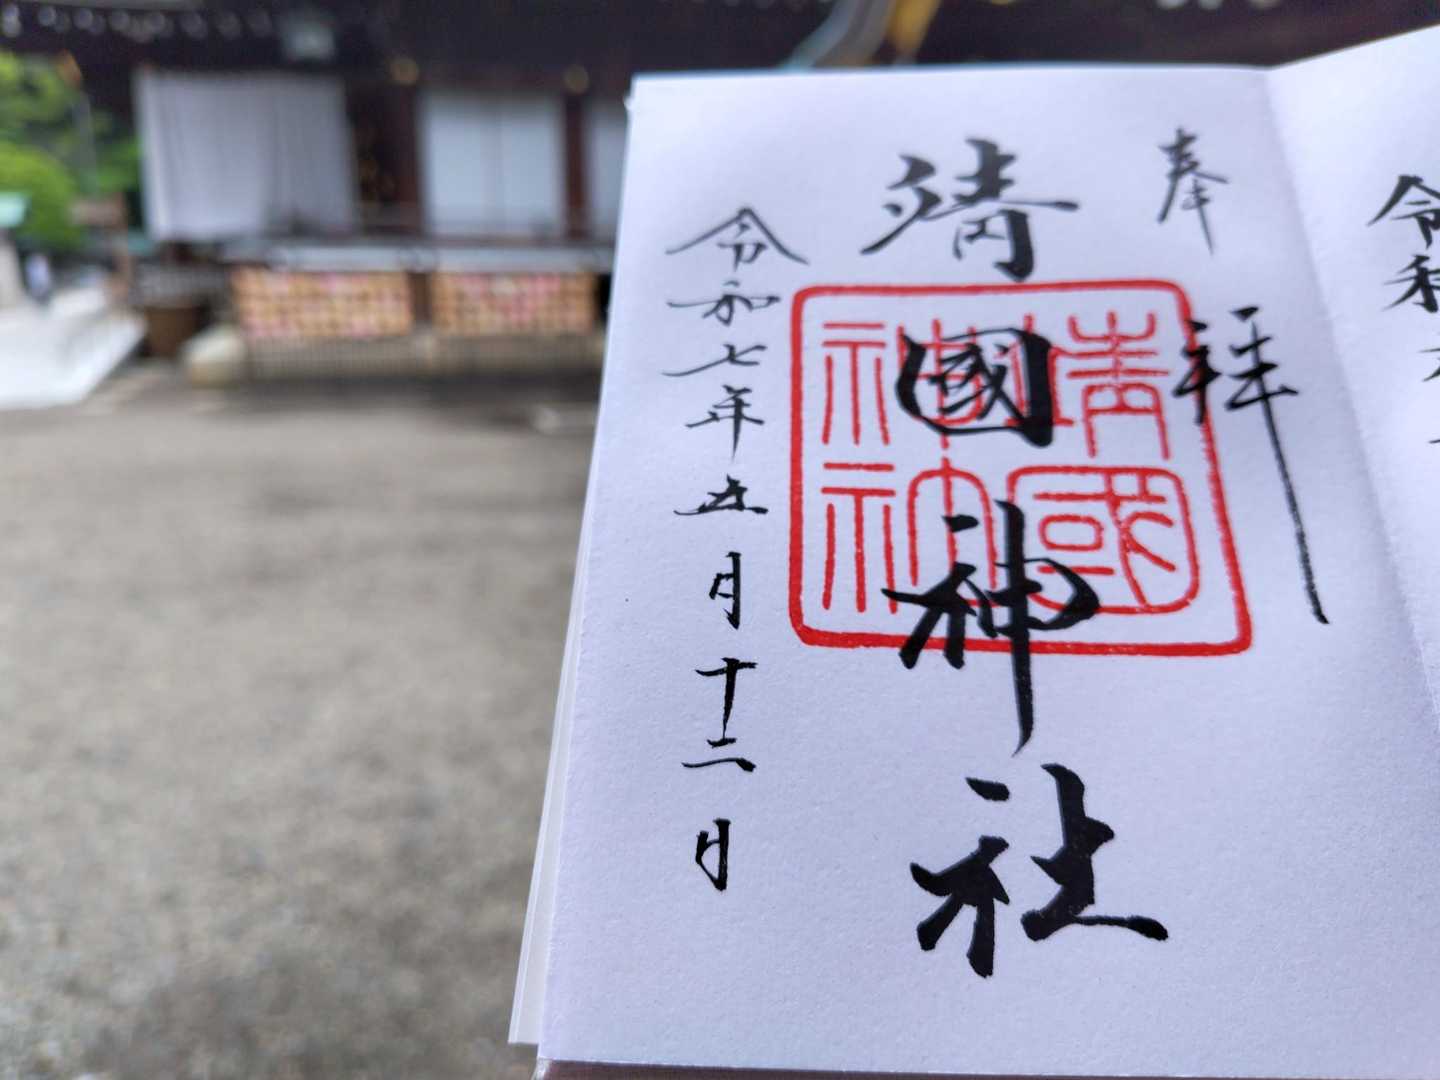 令和
奉拝
靖國神社
靖國
神社
令和七年五月十二日